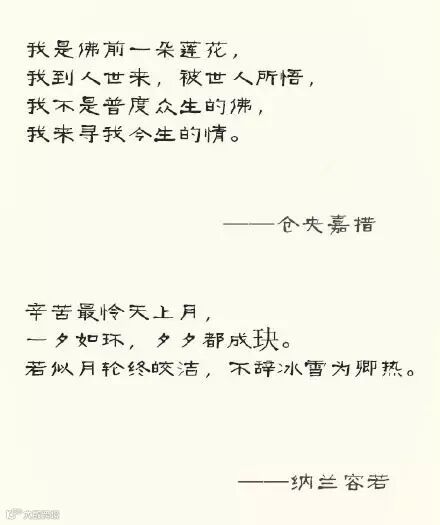 我是佛前一朵莲花，
我到人世来，被世人所悟，
我不是普度众生的佛，
我来寻我今生的情。
——仓央嘉措
辛苦最怜天上月，
一夕如环，夕夕都成玦。
若似月轮终皎洁，不辞冰雪为卿热。
——纳兰容若